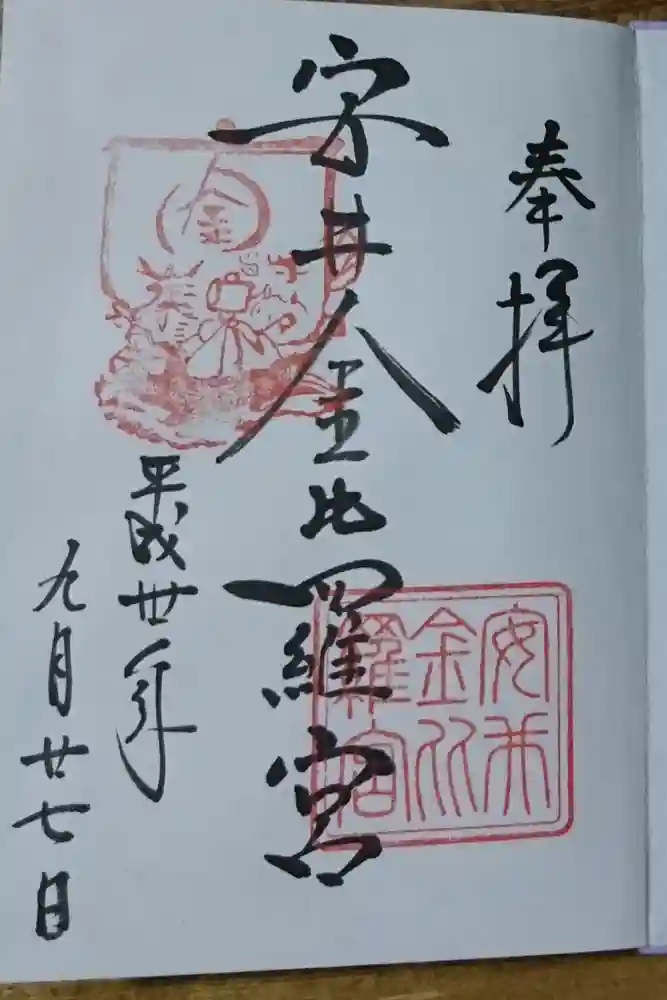 奉拝
安井金比羅宮
平成卅年
九月廿七日
金
安井
金比
羅宮